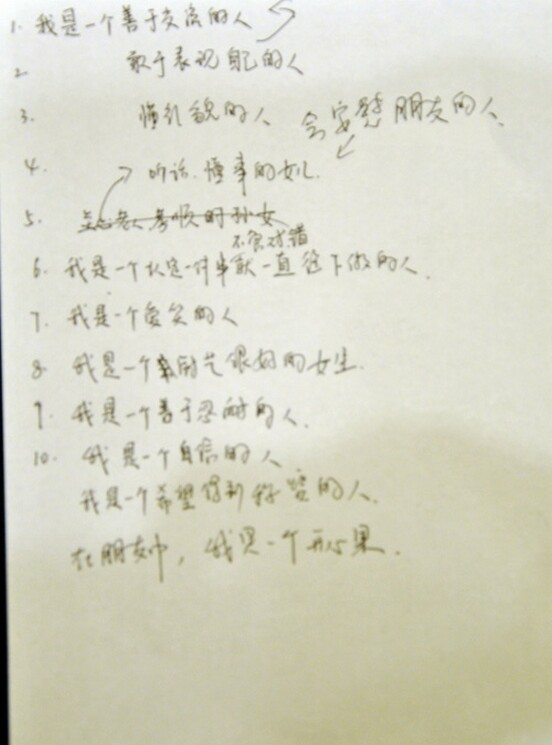 1. 我是一个善于交流的人
2 敢于表现自己的人
3. 懂礼貌的人 会安慰朋友的人.
4. 听话.懂事的女儿.
5. 孝顺的孙女
不管对错
6. 我是一个认定一件事就一直往下做的人.
7. 我是一个爱笑的人
8. 我是一个脾气很好的女生.
9. 我是一个善于忍耐的人.
10. 我是一个自信的人
我是一个希望得到称赞的人.
在朋友中,我是一个开心果.